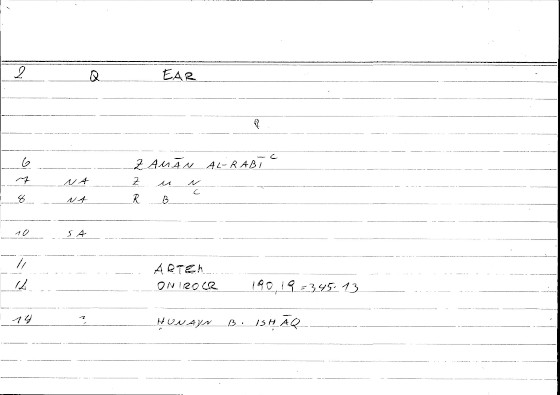 2 Q EAR
6 ZAMĀN AL-RABĪC
7 NA Z M N
8 NA R B C
10 SA
11 ARTEM
12 ONIROCR 190,19=345.13
14 ḤUNAYN B. ISḤĀQ